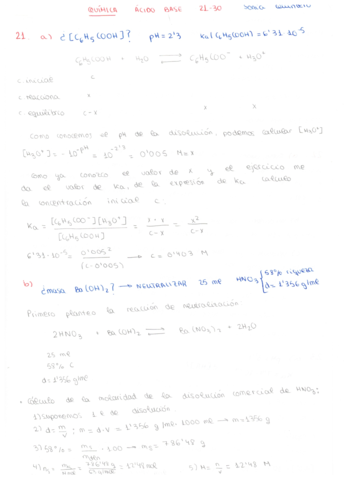 QUÍMICA ÁCIDO BASE 21-30
21. a) ¿[C6H5COOH]? pH=2'3 Ka(C6H5COOH)=6'31·10⁻⁵
C6H5COOH + H2O ⇌ C6H5COO⁻ + H3O⁺
c. inicial c
c. reacciona x x
c. equilibrio c-x
Como conocemos el pH de la disolución, podemos calcular [H3O⁺]
[H3O⁺] = 10^-pH = 10^-2'3 = 0'005 M = x
Como ya conozco el valor de x y el ejercicio me
da el valor de Ka, de la expresión de Ka calculo
la concentración inicial c.
Ka = [C6H5COO⁻][H3O⁺] / [C6H5COOH] = x·x / c-x = x² / c-x
6'31·10⁻⁵ = 0'005² / (c-0'005) → c = 0'403 M
b) ¿masa Ba(OH)2? → NEUTRALIZAR 25 ml HNO3 { 58% riqueza
d = 1'356 g/ml
Primero planteo la reacción de neutralización
2HNO3 + Ba(OH)2 ⇌ Ba(NO3)2 + 2H2O
25 ml
58%
d = 1'356 g/ml
• Cálculo de la molaridad de la disolución comercial de HNO3:
1) Suponemos: 1 L de disolución
2) d = m/v ; m = d·v = 1'356 g/ml · 1000 ml → m = 1356 g
3) 58% = ms / mDON · 100 → ms = 786'48 g
4) ns = = 786'48 g = 12'48 mol
5) M = n/v = 12'48 M